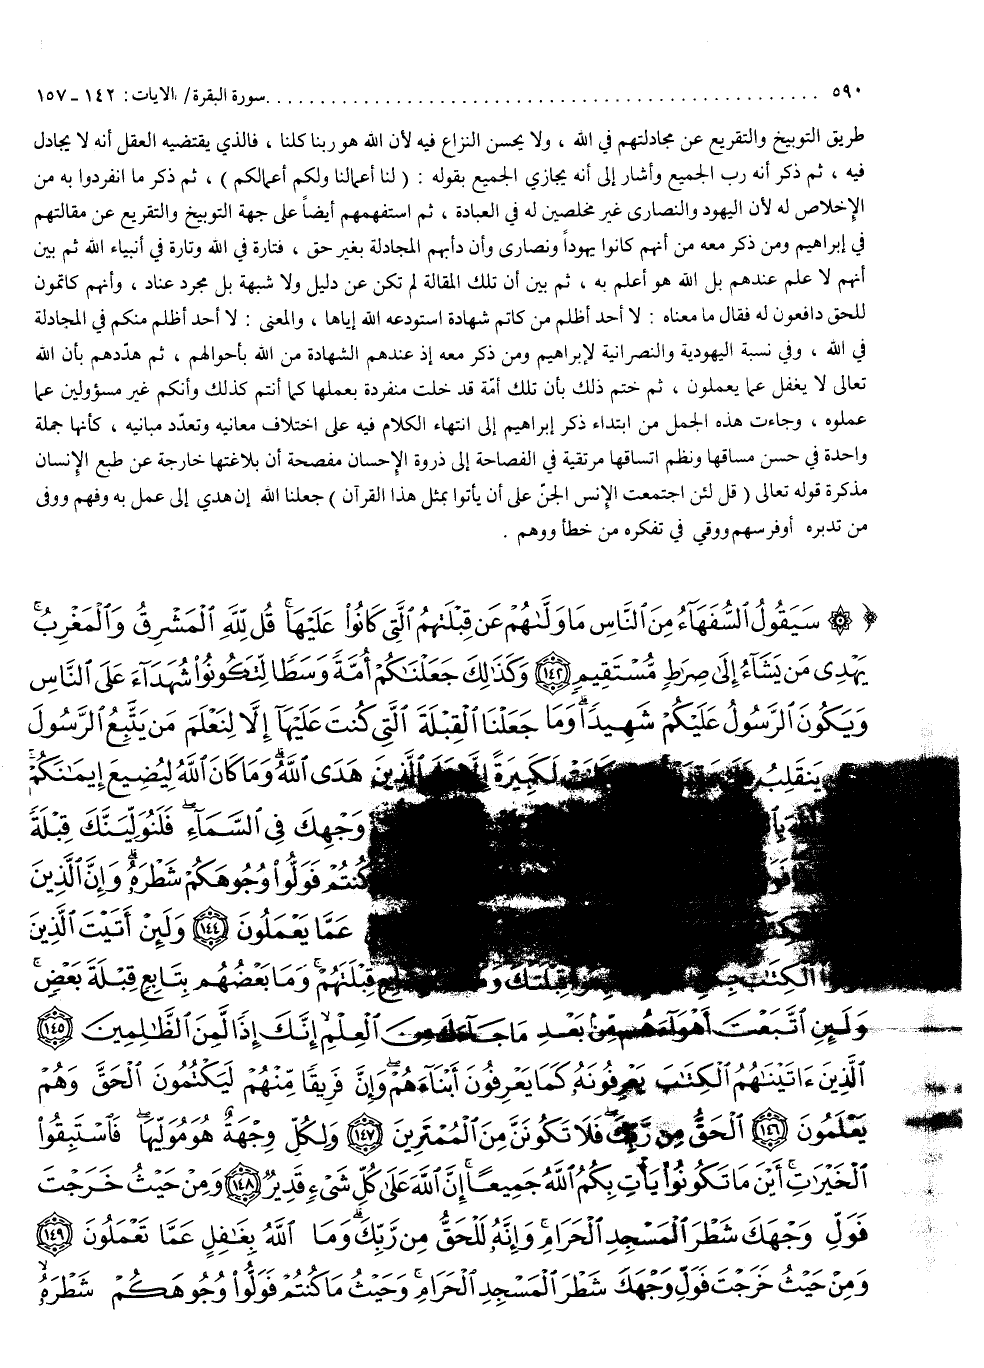 ٥٩٠ ........................................ سورة البقرة/ الايات: ١٤٢ - ١٥٧
طريق التوبيخ والتقريع عن مجادلتهم في الله ، ولا يحسن النزاع فيه لأن الله هو ربنا كلنا ، فالذي يقتضيه العقل أنه لا يجادل
فيه ، ثم ذكر أنه رب الجميع وأشار إلى أنه يجازي الجميع بقوله : ( لنا أعمالنا ولكم أعمالكم ) ، ثم ذكر ما انفردوا به من
الإخلاص له لأن اليهود والنصارى غير مخلصين له في العبادة ، ثم استفهمهم أيضاً على جهة التوبيخ والتقريع عن مقالتهم
في إبراهيم ومن ذكر معه من أنهم كانوا يهوداً ونصارى وأن دأبهم المجادلة بغير حق ، فتارة في الله وتارة في أنبياء الله ثم بين
أنهم لا علم عندهم بل الله هو أعلم به ، ثم بين أن تلك المقالة لم تكن عن دليل ولا شبهة بل مجرد عناد ، وأنهم كاتمون
للحق دافعون له فقال ما معناه : لا أحد أظلم من كاتم شهادة استودعه الله إياها ، والمعنى : لا أحد أظلم منكم في المجادلة
في الله ، وفي نسبة اليهودية والنصرانية لإبراهيم ومن ذكر معه إذ عندهم الشهادة من الله بأحوالهم ، ثم هدّدهم بأن الله
تعالى لا يغفل عما يعملون ، ثم ختم ذلك بأن تلك أمّة قد خلت منفردة بعملها كما أنتم كذلك وأنكم غير مسؤولين عما
عملوه ، وجاءت هذه الجمل من ابتداء ذكر إبراهيم إلى انتهاء الكلام فيه على اختلاف معانيه وتعدّد مبانيه ، كأنها جملة
واحدة في حسن مساقها ونظم اتساقها مرتقية في الفصاحة إلى ذروة الإحسان مفصحة أن بلاغتها خارجة عن طبع الإنسان
مذكرة قوله تعالى ( قل لئن اجتمعت الإنس الجنّ على أن يأتوا بمثل هذا القرآن ) جعلنا الله إن هدي إلى عمل به وفهم ووفى
من تدبره أوفر سهم ووقي في تفكره من خطأ ووهم .
﴿ ۞ سَيَقُولُ ٱلسُّفَهَآءُ مِنَ ٱلنَّاسِ مَا وَلَّىٰهُمْ عَن قِبْلَتِهِمُ ٱلَّتِى كَانُوا۟ عَلَيْهَا ۚ قُل لِّلَّهِ ٱلْمَشْرِقُ وَٱلْمَغْرِبُ ۚ
يَهْدِى مَن يَشَآءُ إِلَىٰ صِرَٰطٍ مُّسْتَقِيمٍ ﴿١٤٢﴾ وَكَذَٰلِكَ جَعَلْنَـٰكُمْ أُمَّةً وَسَطًا لِّتَكُونُوا۟ شُهَدَآءَ عَلَى ٱلنَّاسِ
وَيَكُونَ ٱلرَّسُولُ عَلَيْكُمْ شَهِيدًا ۗ وَمَا جَعَلْنَا ٱلْقِبْلَةَ ٱلَّتِى كُنتَ عَلَيْهَآ إِلَّا لِنَعْلَمَ مَن يَتَّبِعُ ٱلرَّسُولَ
يَنقَلِبُ لَكَبِيرَةً ٱلَّذِينَ هَدَى ٱللَّهُ ۗ وَمَا كَانَ ٱللَّهُ لِيُضِيعَ إِيمَـٰنَكُمْ ۚ
وَجْهِكَ فِى ٱلسَّمَآءِ ۖ فَلَنُوَلِّيَنَّكَ قِبْلَةً
كُنتُمْ فَوَلُّوا۟ وُجُوهَكُمْ شَطْرَهُۥ ۗ وَإِنَّ ٱلَّذِينَ
عَمَّا يَعْمَلُونَ ﴿١٤٤﴾ وَلَئِنْ أَتَيْتَ ٱلَّذِينَ
ٱلْكِتَـٰبَ قِبْلَتَكَ قِبْلَتَهُمْ ۚ وَمَا بَعْضُهُم بِتَابِعٍ قِبْلَةَ بَعْضٍ ۚ
وَلَئِنِ ٱتَّبَعْتَ أَهْوَآءَهُم مِّنۢ بَعْدِ مَا جَآءَكَ مِنَ ٱلْعِلْمِ ۙ إِنَّكَ إِذًا لَّمِنَ ٱلظَّـٰلِمِينَ ﴿١٤٥﴾
ٱلَّذِينَ ءَاتَيْنَـٰهُمُ ٱلْكِتَـٰبَ يَعْرِفُونَهُۥ كَمَا يَعْرِفُونَ أَبْنَآءَهُمْ ۖ وَإِنَّ فَرِيقًا مِّنْهُمْ لَيَكْتُمُونَ ٱلْحَقَّ وَهُمْ
يَعْلَمُونَ ﴿١٤٦﴾ ٱلْحَقُّ مِن رَّبِّكَ ۖ فَلَا تَكُونَنَّ مِنَ ٱلْمُمْتَرِينَ ﴿١٤٧﴾ وَلِكُلٍّ وِجْهَةٌ هُوَ مُوَلِّيهَا ۖ فَٱسْتَبِقُوا۟
ٱلْخَيْرَٰتِ ۚ أَيْنَ مَا تَكُونُوا۟ يَأْتِ بِكُمُ ٱللَّهُ جَمِيعًا ۚ إِنَّ ٱللَّهَ عَلَىٰ كُلِّ شَىْءٍ قَدِيرٌ ﴿١٤٨﴾ وَمِنْ حَيْثُ خَرَجْتَ
فَوَلِّ وَجْهَكَ شَطْرَ ٱلْمَسْجِدِ ٱلْحَرَامِ ۖ وَإِنَّهُۥ لَلْحَقُّ مِن رَّبِّكَ ۗ وَمَا ٱللَّهُ بِغَـٰفِلٍ عَمَّا تَعْمَلُونَ ﴿١٤٩﴾
وَمِنْ حَيْثُ خَرَجْتَ فَوَلِّ وَجْهَكَ شَطْرَ ٱلْمَسْجِدِ ٱلْحَرَامِ ۚ وَحَيْثُ مَا كُنتُمْ فَوَلُّوا۟ وُجُوهَكُمْ شَطْرَهُۥ